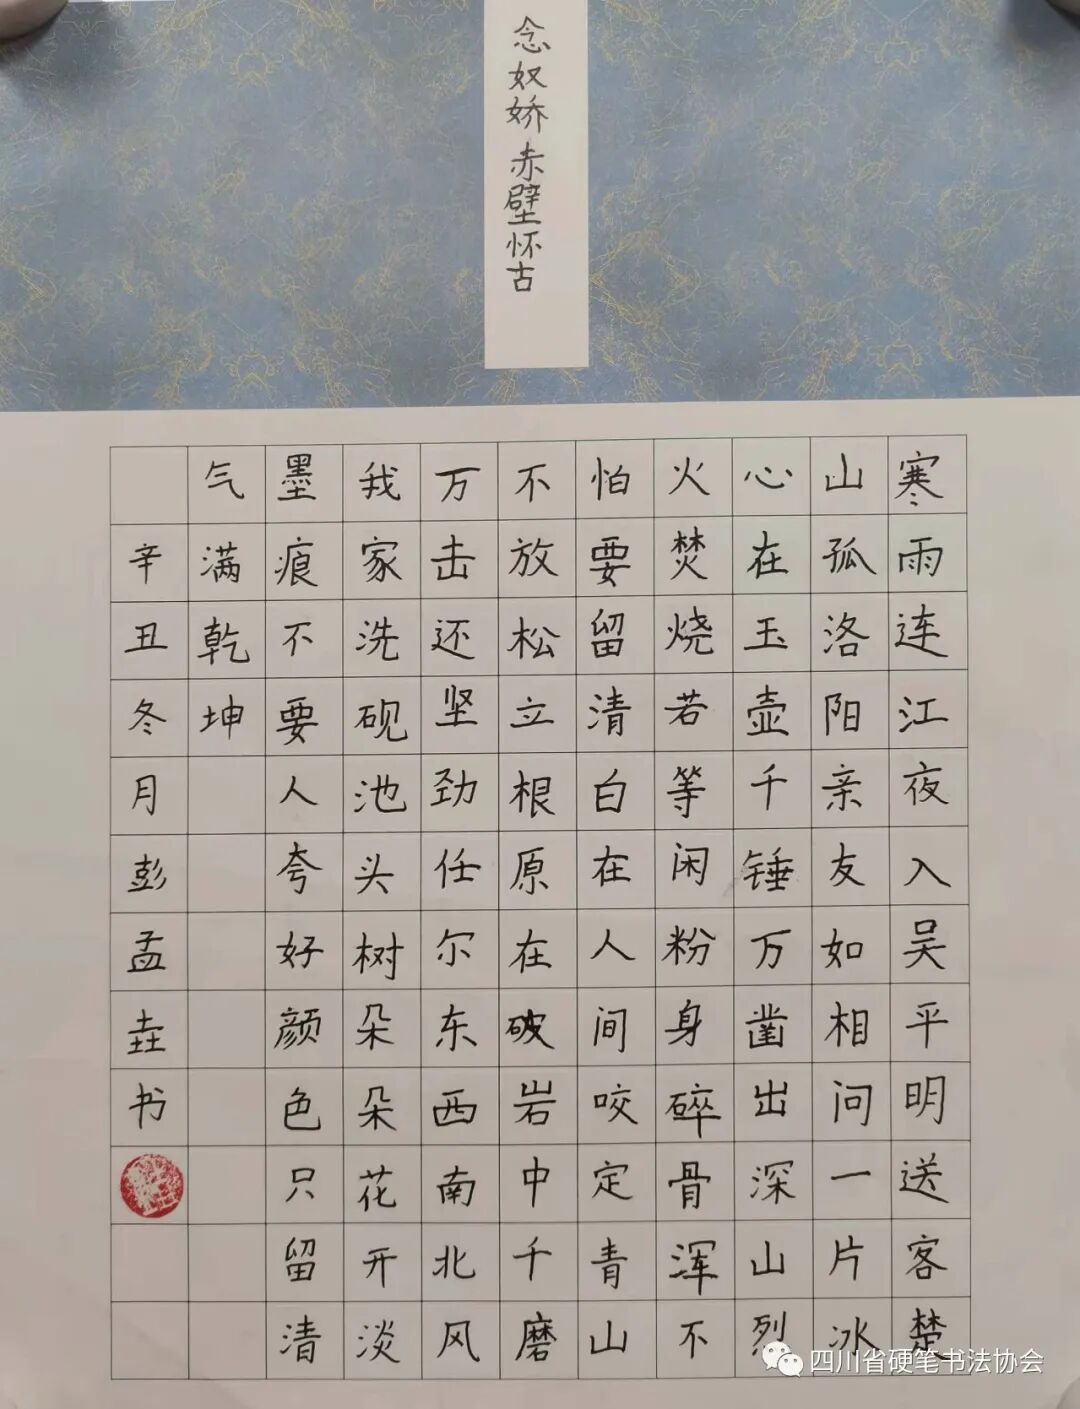 念奴娇赤壁怀古
寒雨连江夜入吴平明送客楚
山孤洛阳亲友如相问一片冰
心在玉壶千锤万凿出深山烈
火焚烧若等闲粉身碎骨浑不
怕要留清白在人间咬定青山
不放松立根原在破岩中千磨
万击还坚劲任尔东西南北风
我家洗砚池头树朵朵花开淡
墨痕不要人夸好颜色只留清
气满乾坤
辛丑冬月彭孟垚书
四川省硬笔书法协会